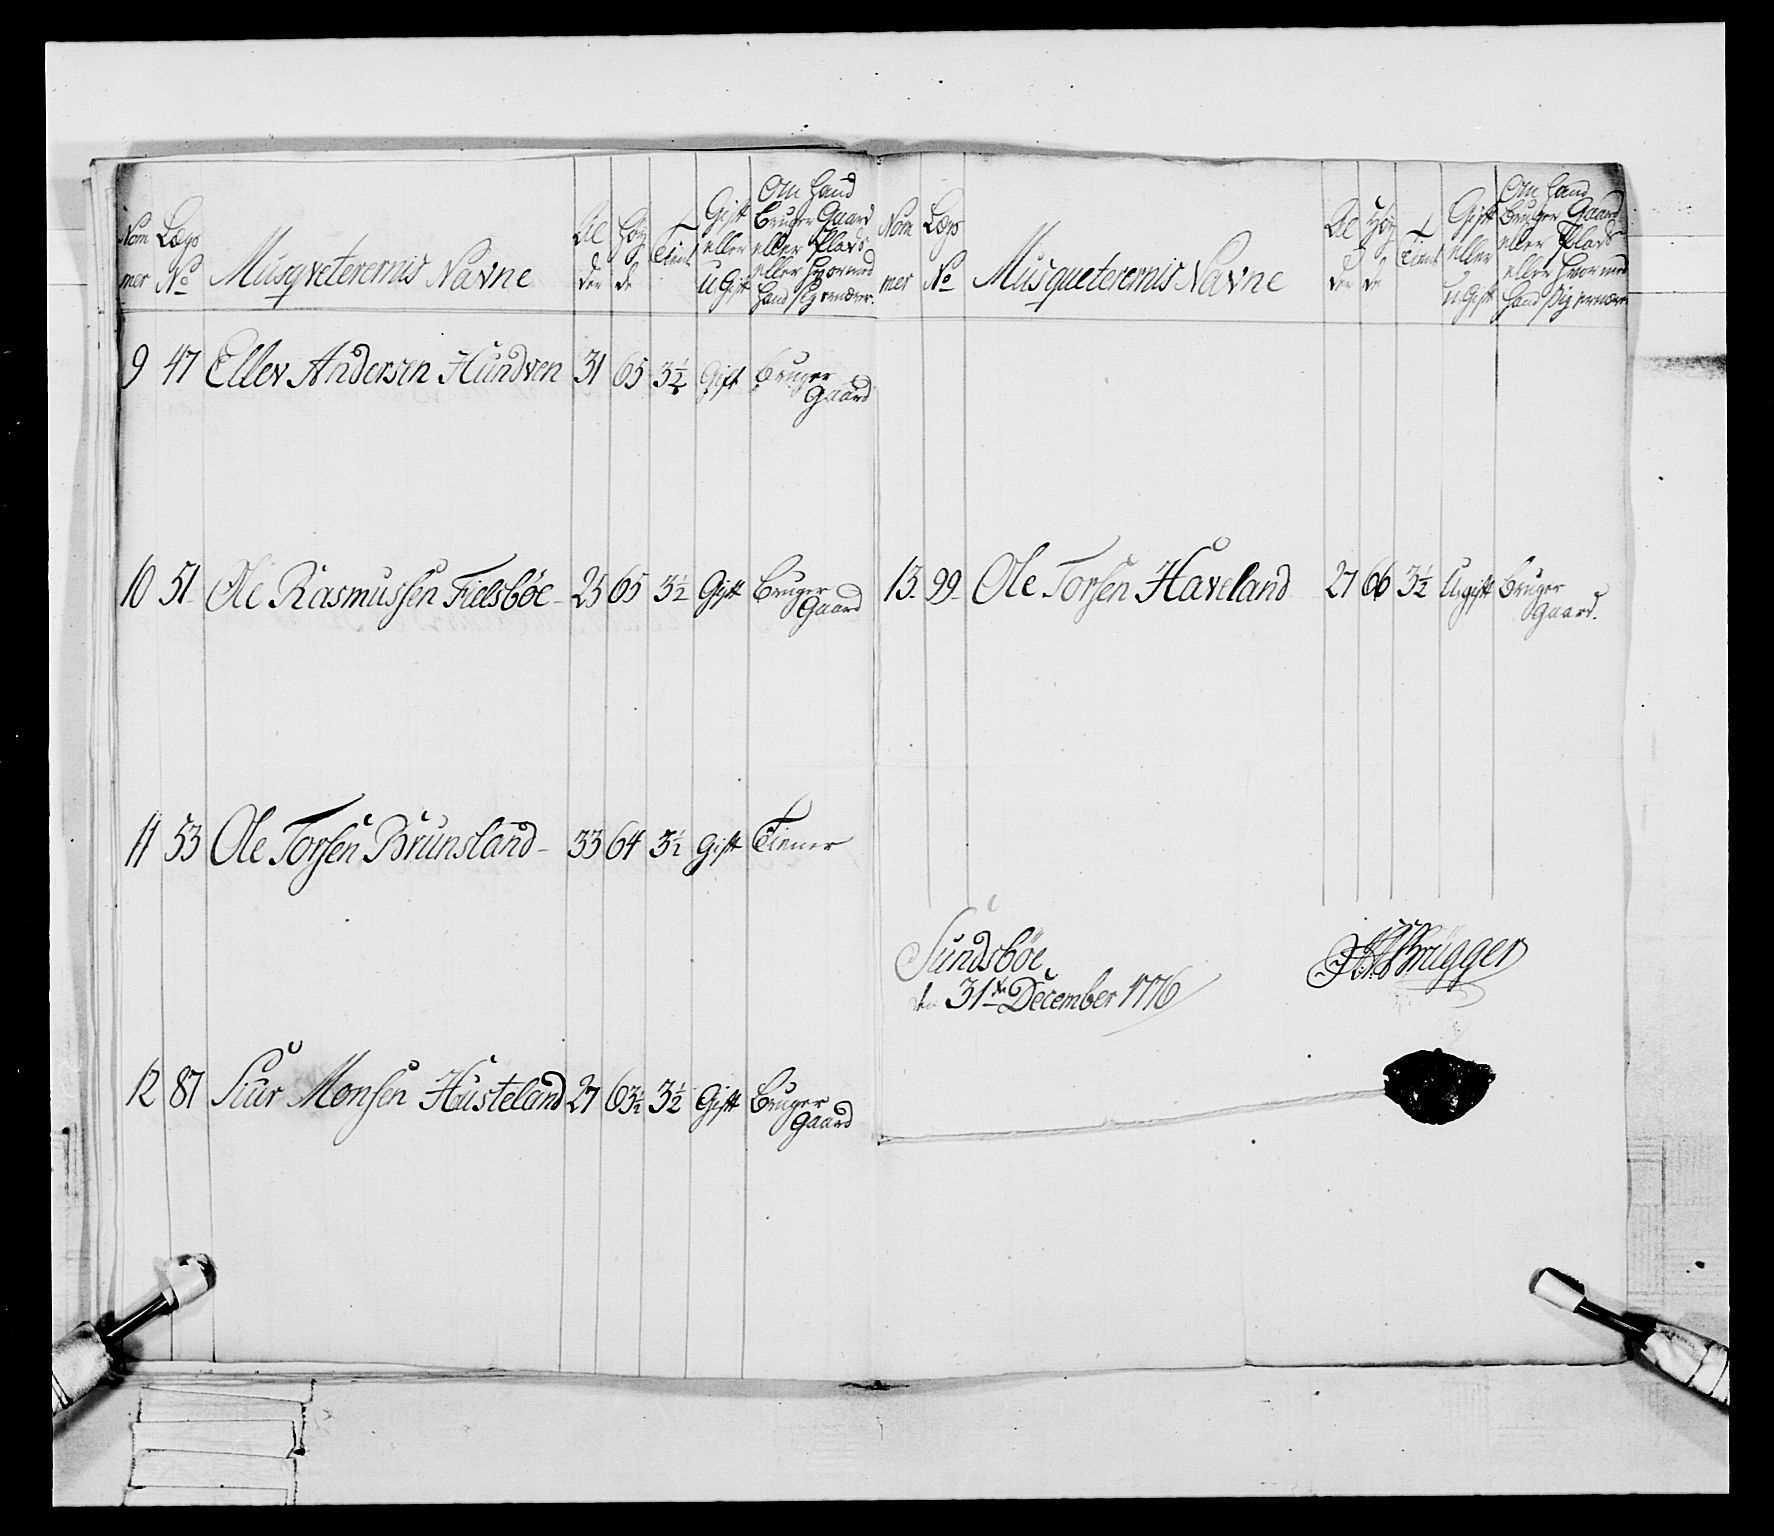 Nom mer | Lægs No | Musqveterernis Navne | Al der | Høy de | Tient | Gift eller uGift | Om Hand Bruger Gaard eller Plads eller Hvormed Hand sig ernærer.
9 47 Ellev Andersen Hundven 31 65 3½ Gift Bruger Gaard
10 51 Ole Rasmussen Fielsbøe 25 65 3½ Gift Bruger Gaard
11 53 Ole Torsen Brunsland 33 64 3½ Gift Tiener
12 87 Siur Monsen Husteland 27 63½ 3½ Gift Bruger Gaard
Nom mer | Lægs No | Musqueterernis Navne | Al der | Høy de | Tient | Gift eller uGift | Om Hand Bruger Gaard eller Plads eller Hvormed Hand sig ernærer
13 99 Ole Torsen Haveland 27 66 3½ Ugift Bruger Gaard.
Sundsbøe
den 31te December 1776
Brügger